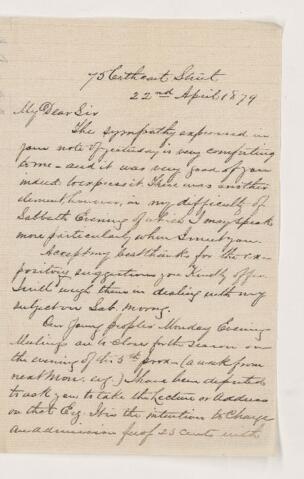 75 Cathcart Street
22nd April 1879
My Dear Sir
The sympathy expressed in
your note of yesterday is very comforting
to me - and it was very good of you
indeed to express it. There was another
element however, in my difficulty of
Sabbath Evening of which I may speak
more particularly when I meet you.
Accept my best thanks for the ex-
pository suggestions you kindly offer
I will weigh them in dealing with my
subject on Sab. morng.
Our Young People's Monday Evening
Meetings are to close for the season on
the evening of the 5th prox- (a week from
next Mon. evg.) I have been deputed
to ask you to take the Lecture or Address
on that Evg. It is the intention to charge
an admission fee of 25 cents with